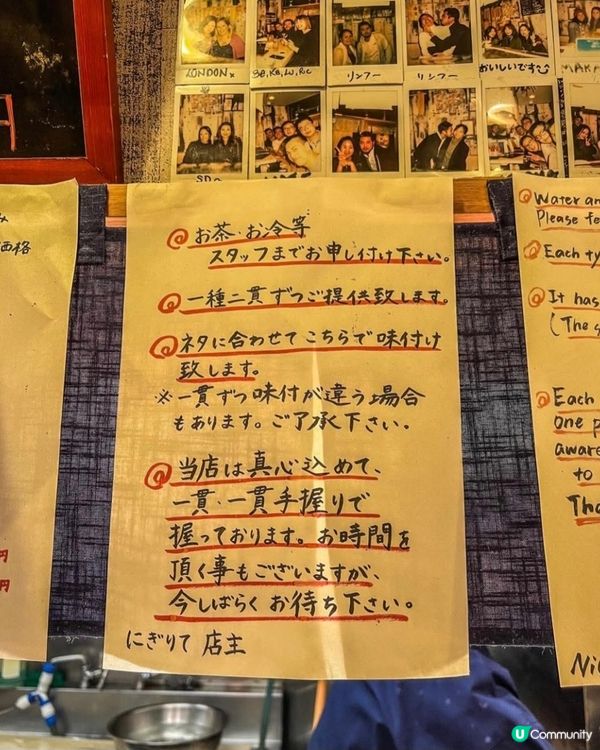 LONDON
リンフー
リンフー
おいしいです
MAKA
価格
円
円
@ お茶・お冷等
スタッフまでお申し付け下さい。
@ 一種二貫ずつご提供致します。
@ ネタに合わせてこちらで味付け
致します。
※一貫ずつ味付が違う場合
もあります。ご了承下さい。
@ 当店は真心込めて、
一貫・一貫手握りで
握っております。お時間を
頂く事もございますが、
今しばらくお待ち下さい。
にぎりて 店主
@ Water an
Please fe
@ Each ty
@ It has
(The s
@ Each
one p
aware
to
Tha
Ni
U Community